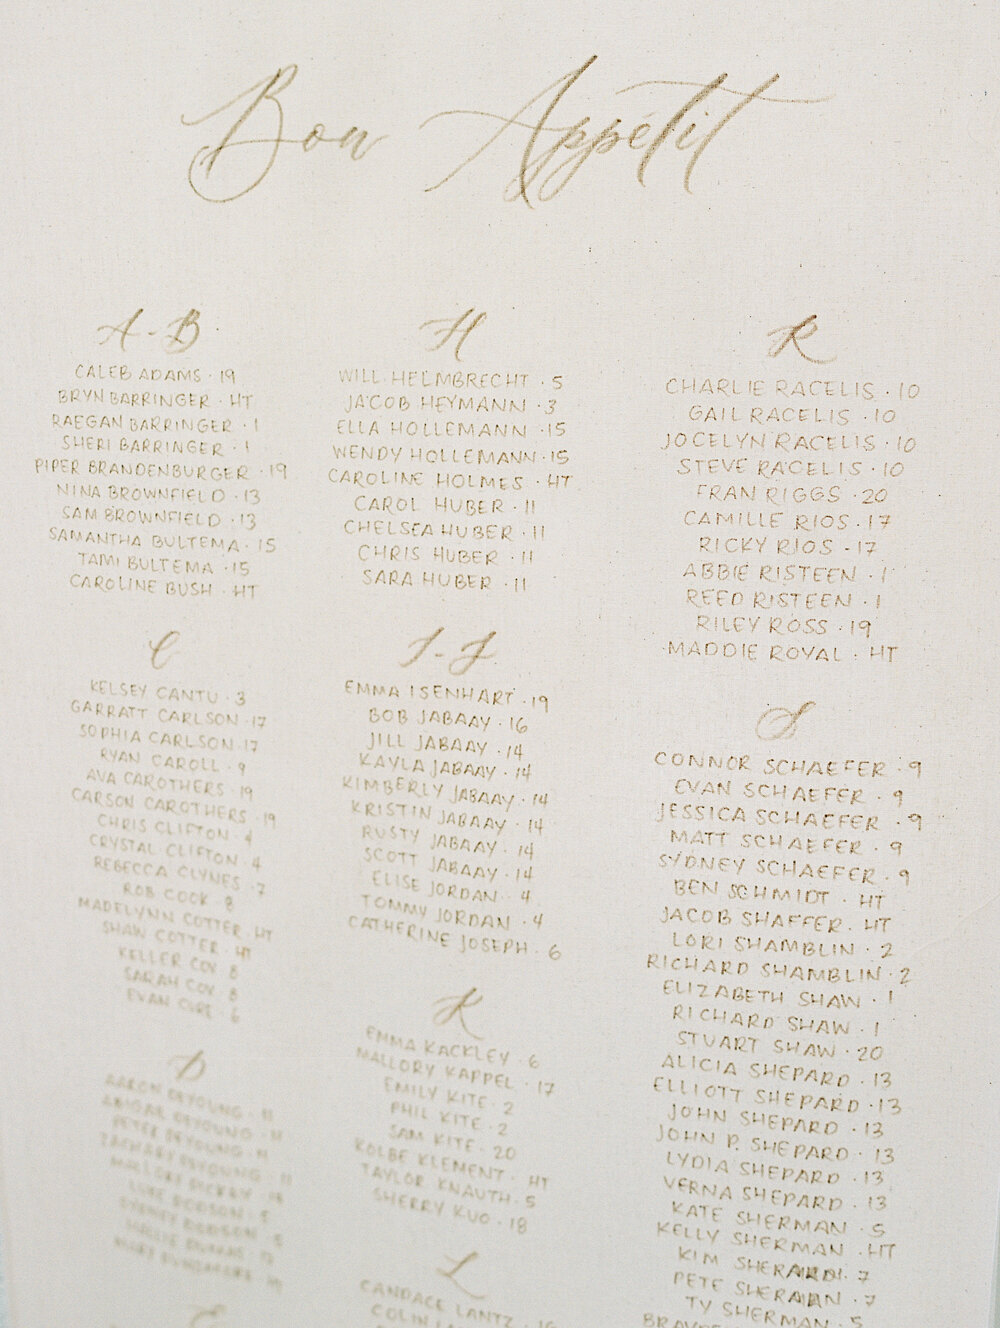 Bon Appétit
A-B
CALEB ADAMS · 19
BRYN BARRINGER · HT
RAEGAN BARRINGER · 1
SHERI BARRINGER · 1
PIPER BRANDENBURGER · 19
NINA BROWNFIELD · 13
SAM BROWNFIELD · 13
SAMANTHA BULTEMA · 15
TAMI BULTEMA · 15
CAROLINE BUSH · HT
C
KELSEY CANTU · 3
GARRATT CARLSON · 17
SOPHIA CARLSON · 17
RYAN CAROLL · 9
AVA CAROTHERS · 19
CARSON CAROTHERS · 19
CHRIS CLIFTON · 4
CRYSTAL CLIFTON · 4
REBECCA CLYNES · 7
ROB COOK · 8
MADELYNN COTTER · HT
SHAW COTTER · HT
KELLER COX · 8
SARAH COX · 8
EVAN CURE · 6
D
AARON DEYOUNG · 11
ABIGAIL DEYOUNG · 11
PETER DEYOUNG · 11
ZACHARY DEYOUNG · 11
MALLORY
LUKE DODSON · 5
SYDNEY DODSON · 5
E
H
WILL HELMBRECHT · 5
JACOB HEYMANN · 3
ELLA HOLLEMANN · 15
WENDY HOLLEMANN · 15
CAROLINE HOLMES · HT
CAROL HUBER · 11
CHELSEA HUBER · 11
CHRIS HUBER · 11
SARA HUBER · 11
I-J
EMMA ISENHART · 19
BOB JABAAY · 16
JILL JABAAY · 14
KAYLA JABAAY · 14
KIMBERLY JABAAY · 14
KRISTIN JABAAY · 14
RUSTY JABAAY · 14
SCOTT JABAAY · 14
ELISE JORDAN · 4
TOMMY JORDAN · 4
CATHERINE JOSEPH · 6
K
EMMA KACKLEY · 6
MALLORY KAPPEL · 17
EMILY KITE · 2
PHIL KITE · 2
SAM KITE · 20
KOLBE KLEMENT · HT
TAYLOR KNAUTH · 5
SHERRY KUO · 18
L
CANDACE LANTZ · 16
COLIN
R
CHARLIE RACELIS · 10
GAIL RACELIS · 10
JOCELYN RACELIS · 10
STEVE RACELIS · 10
FRAN RIGGS · 20
CAMILLE RIOS · 17
RICKY RIOS · 17
ABBIE RISTEEN · 1
REED RISTEEN · 1
RILEY ROSS · 19
MADDIE ROYAL · HT
S
CONNOR SCHAEFER · 9
EVAN SCHAEFER · 9
JESSICA SCHAEFER · 9
MATT SCHAEFER · 9
SYDNEY SCHAEFER · 9
BEN SCHMIDT · HT
JACOB SHAFFER · HT
LORI SHAMBLIN · 2
RICHARD SHAMBLIN · 2
ELIZABETH SHAW · 1
RICHARD SHAW · 1
STUART SHAW · 20
ALICIA SHEPARD · 13
ELLIOTT SHEPARD · 13
JOHN SHEPARD · 13
JOHN P. SHEPARD · 13
LYDIA SHEPARD · 13
VERNA SHEPARD · 13
KATE SHERMAN · 5
KELLY SHERMAN · HT
KIM SHERMAN · 7
PETE SHERMAN · 7
TY SHERMAN · 5